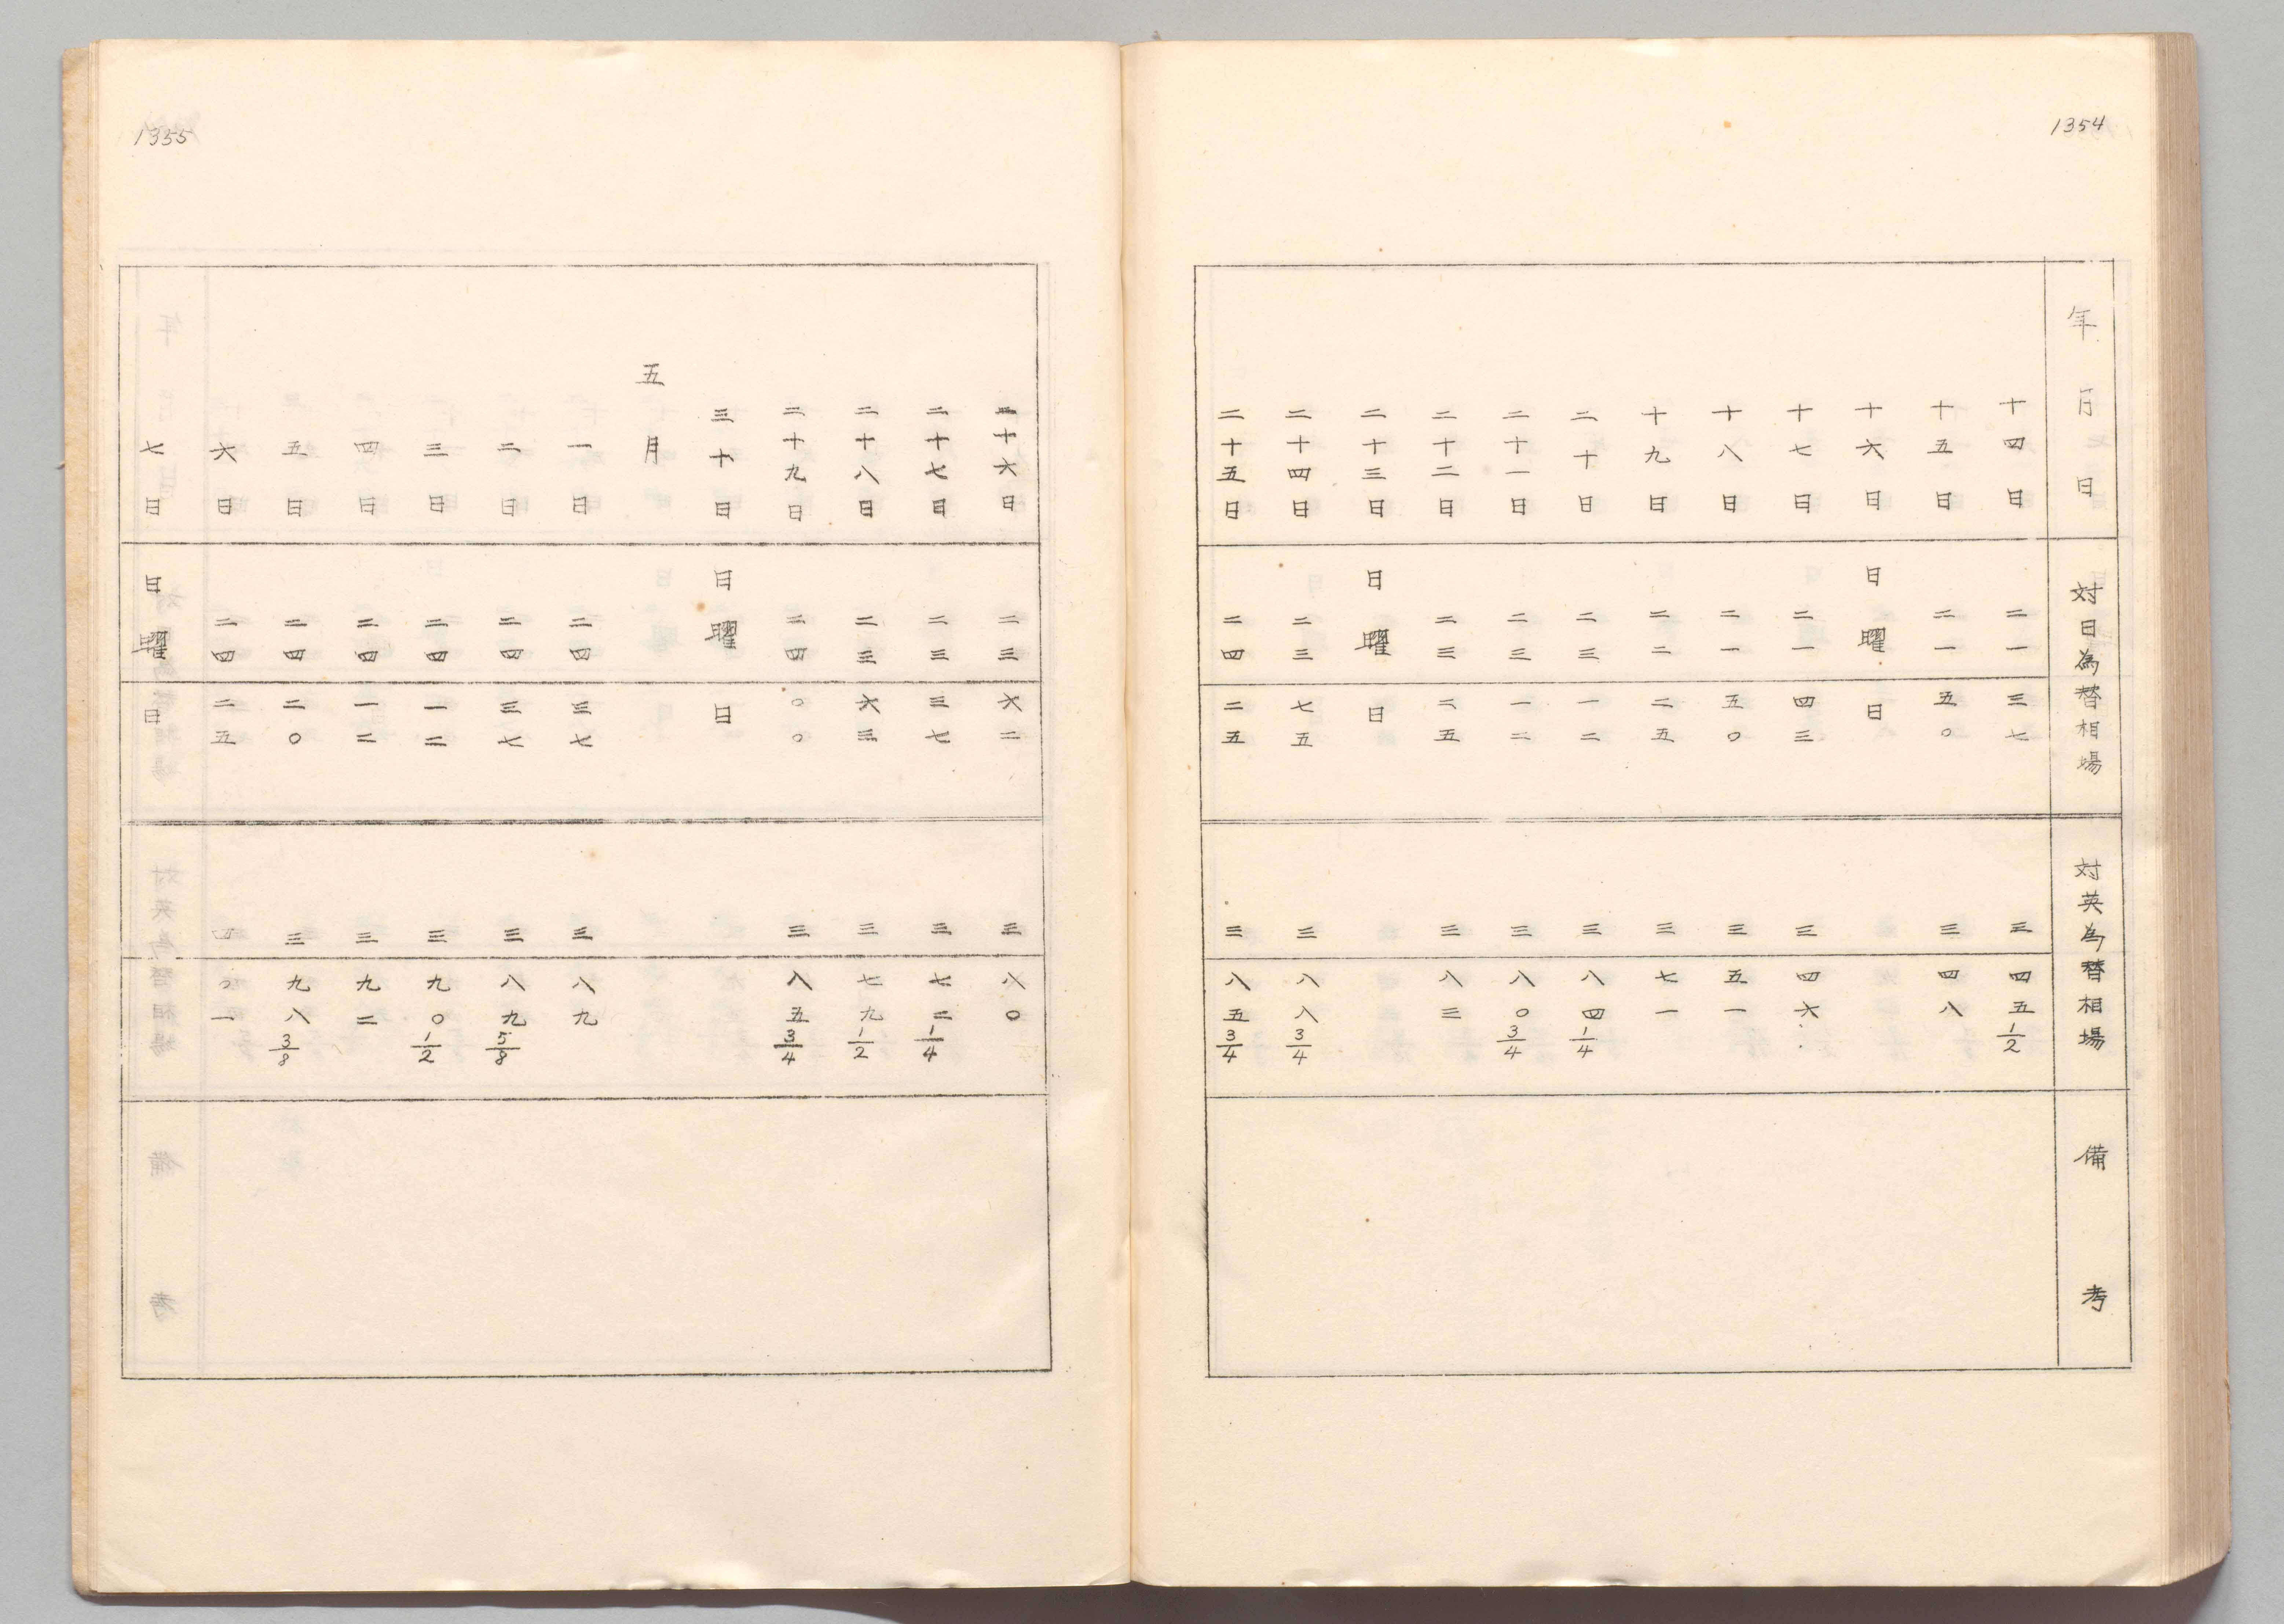 1354
年月日 対日為替相場 対英為替相場 備考
十四日 二一 三七 三 四五 1/2
十五日 二一 五〇 三 四八
十六日 日曜日
十七日 二一 四三 三 四六
十八日 二一 五〇 三 五一
十九日 二二 二五 三 七一
二十日 二三 一二 三 八四 1/4
二十一日 二三 一二 三 八〇 3/4
二十二日 二三 二五 三 八三
二十三日 日曜日
二十四日 二三 七五 三 八八 3/4
二十五日 二四 二五 三 八五 3/4
1355
二十六日 二三 六二 三 八〇
二十七日 二三 三七 三 七二 1/4
二十八日 二三 六三 三 七九 1/2
二十九日 二四 〇〇 三 八五 3/4
三十日 日曜日
五月
一日 二四 三七 三 八九
二日 二四 三七 三 八九 5/8
三日 二四 一二 三 九〇 1/2
四日 二四 一二 三 九二
五日 二四 二〇 三 九八 3/8
六日 二四 二五 四 〇一
七日 日曜日